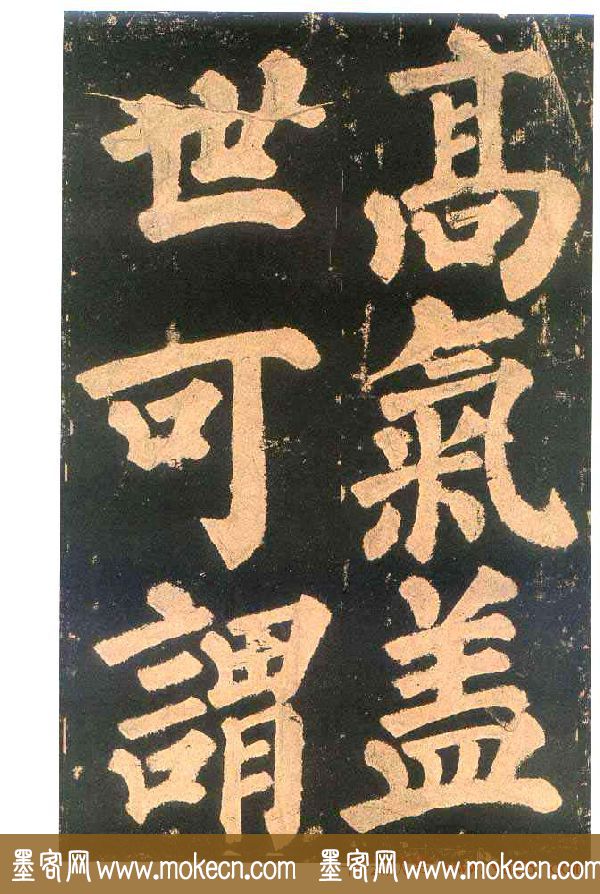 高氣盖
世可謂
墨客网 www.mokecn.com 墨客网 www.mokecn.com